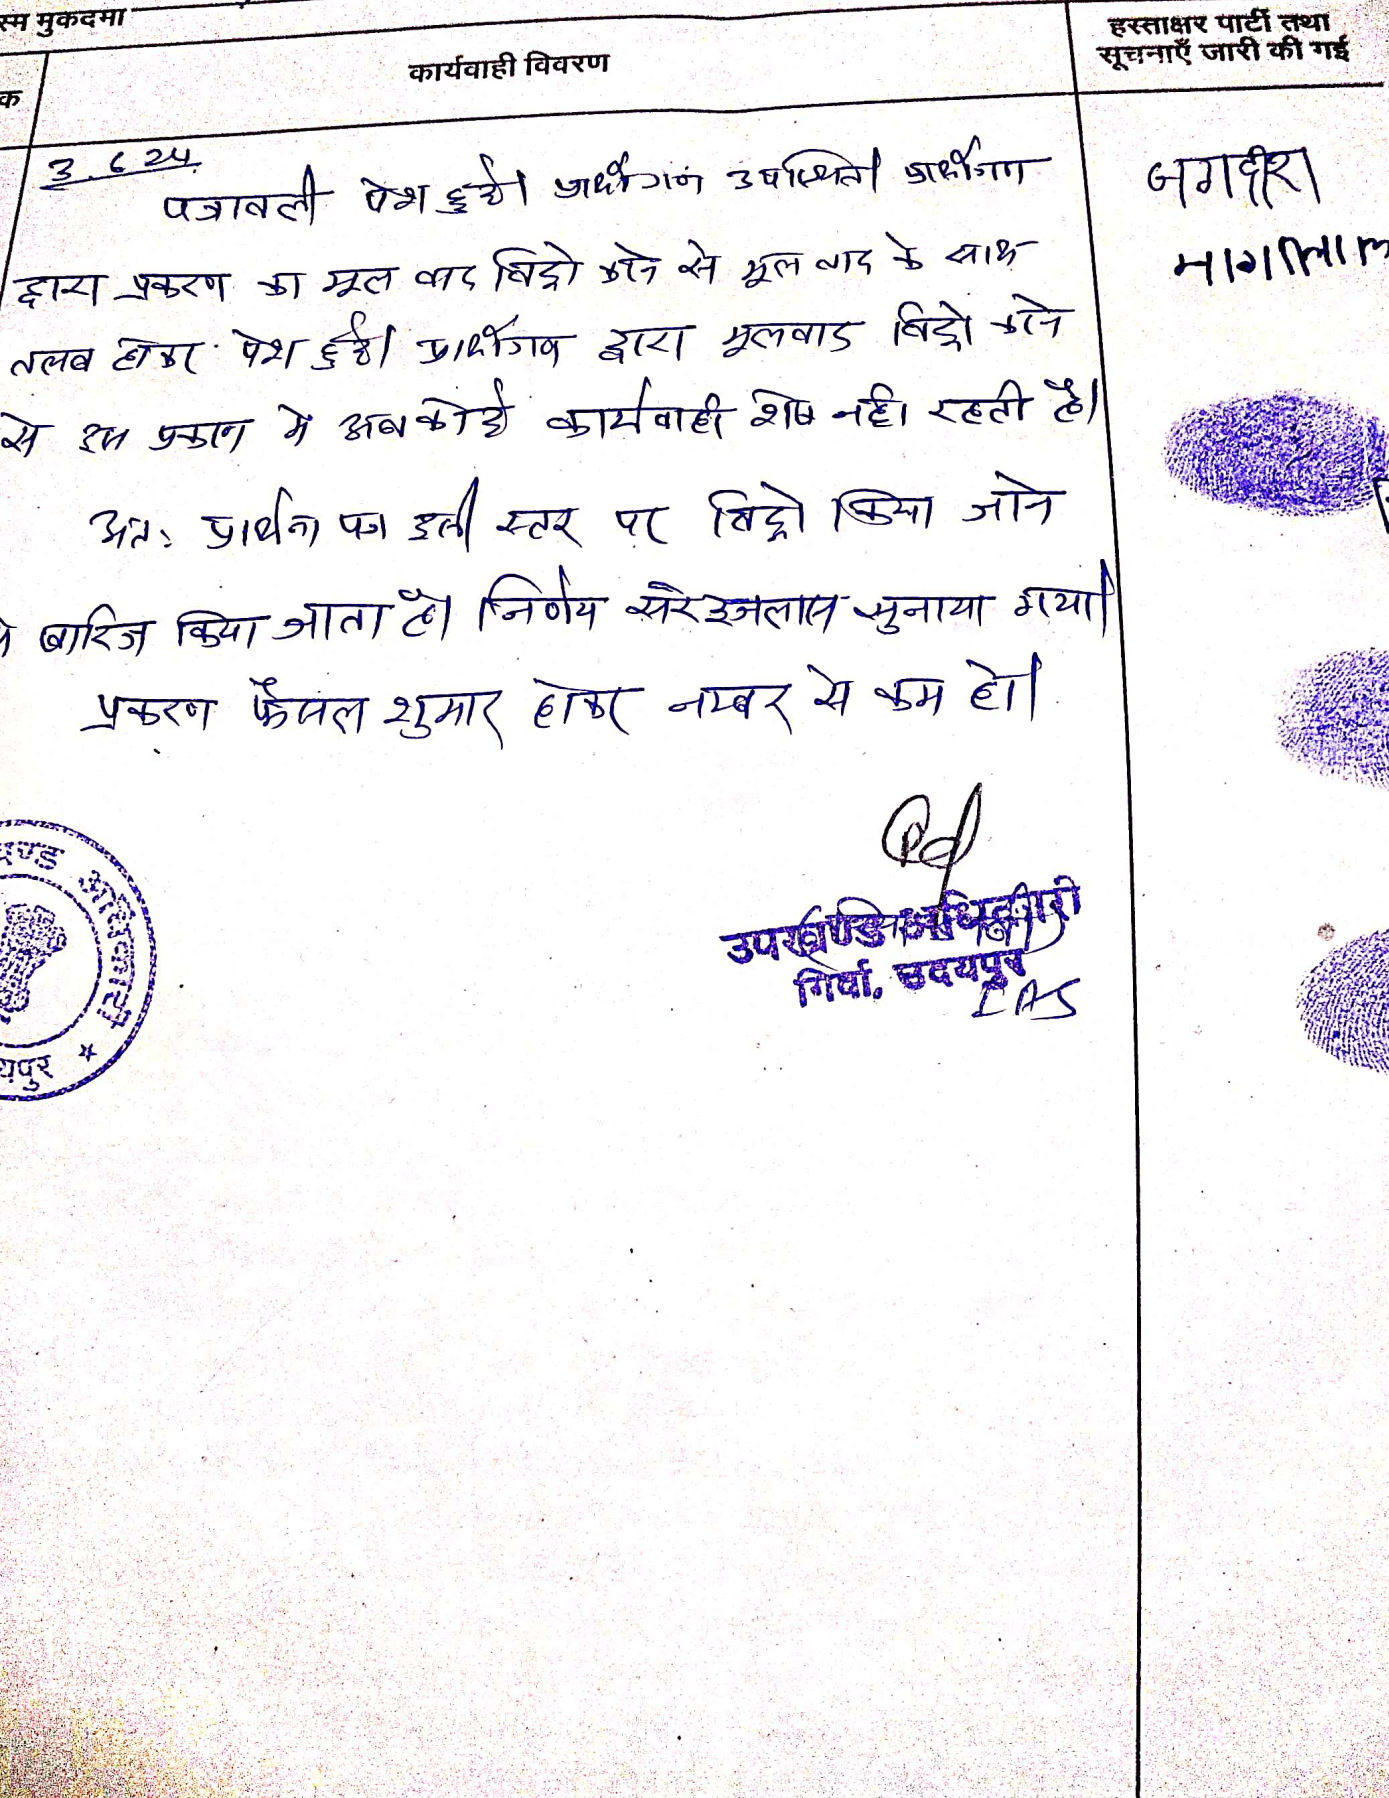 स्म मुकदमा
हस्ताक्षर पार्टी तथा
सूचनाएँ जारी की गई
क
कार्यवाही विवरण
3.6.24
पत्रावली पेश हुई। प्रार्थीगण उपस्थित। प्रार्थीगण
द्वारा प्रकरण का मूल वाद विड्रो करने से मूल वाद के साथ
तलब होकर पेश हुई। प्रार्थीगण द्वारा मूलवाद विड्रो करने
से इस प्रकरण में अब कोई कार्यवाही शेष नहीं रहती है।
अतः प्रार्थना पत्र इसी स्तर पर विड्रो किया जाने
से खारिज किया जाता है। निर्णय सरे इजलास सुनाया गया।
प्रकरण फैसल शुमार होकर नम्बर से कम हो।
जगदीश
मांगीलाल
उपखण्ड अधिकारी
गिर्वा, उदयपुर
IAS
खण्ड अधिकारी
यपुर